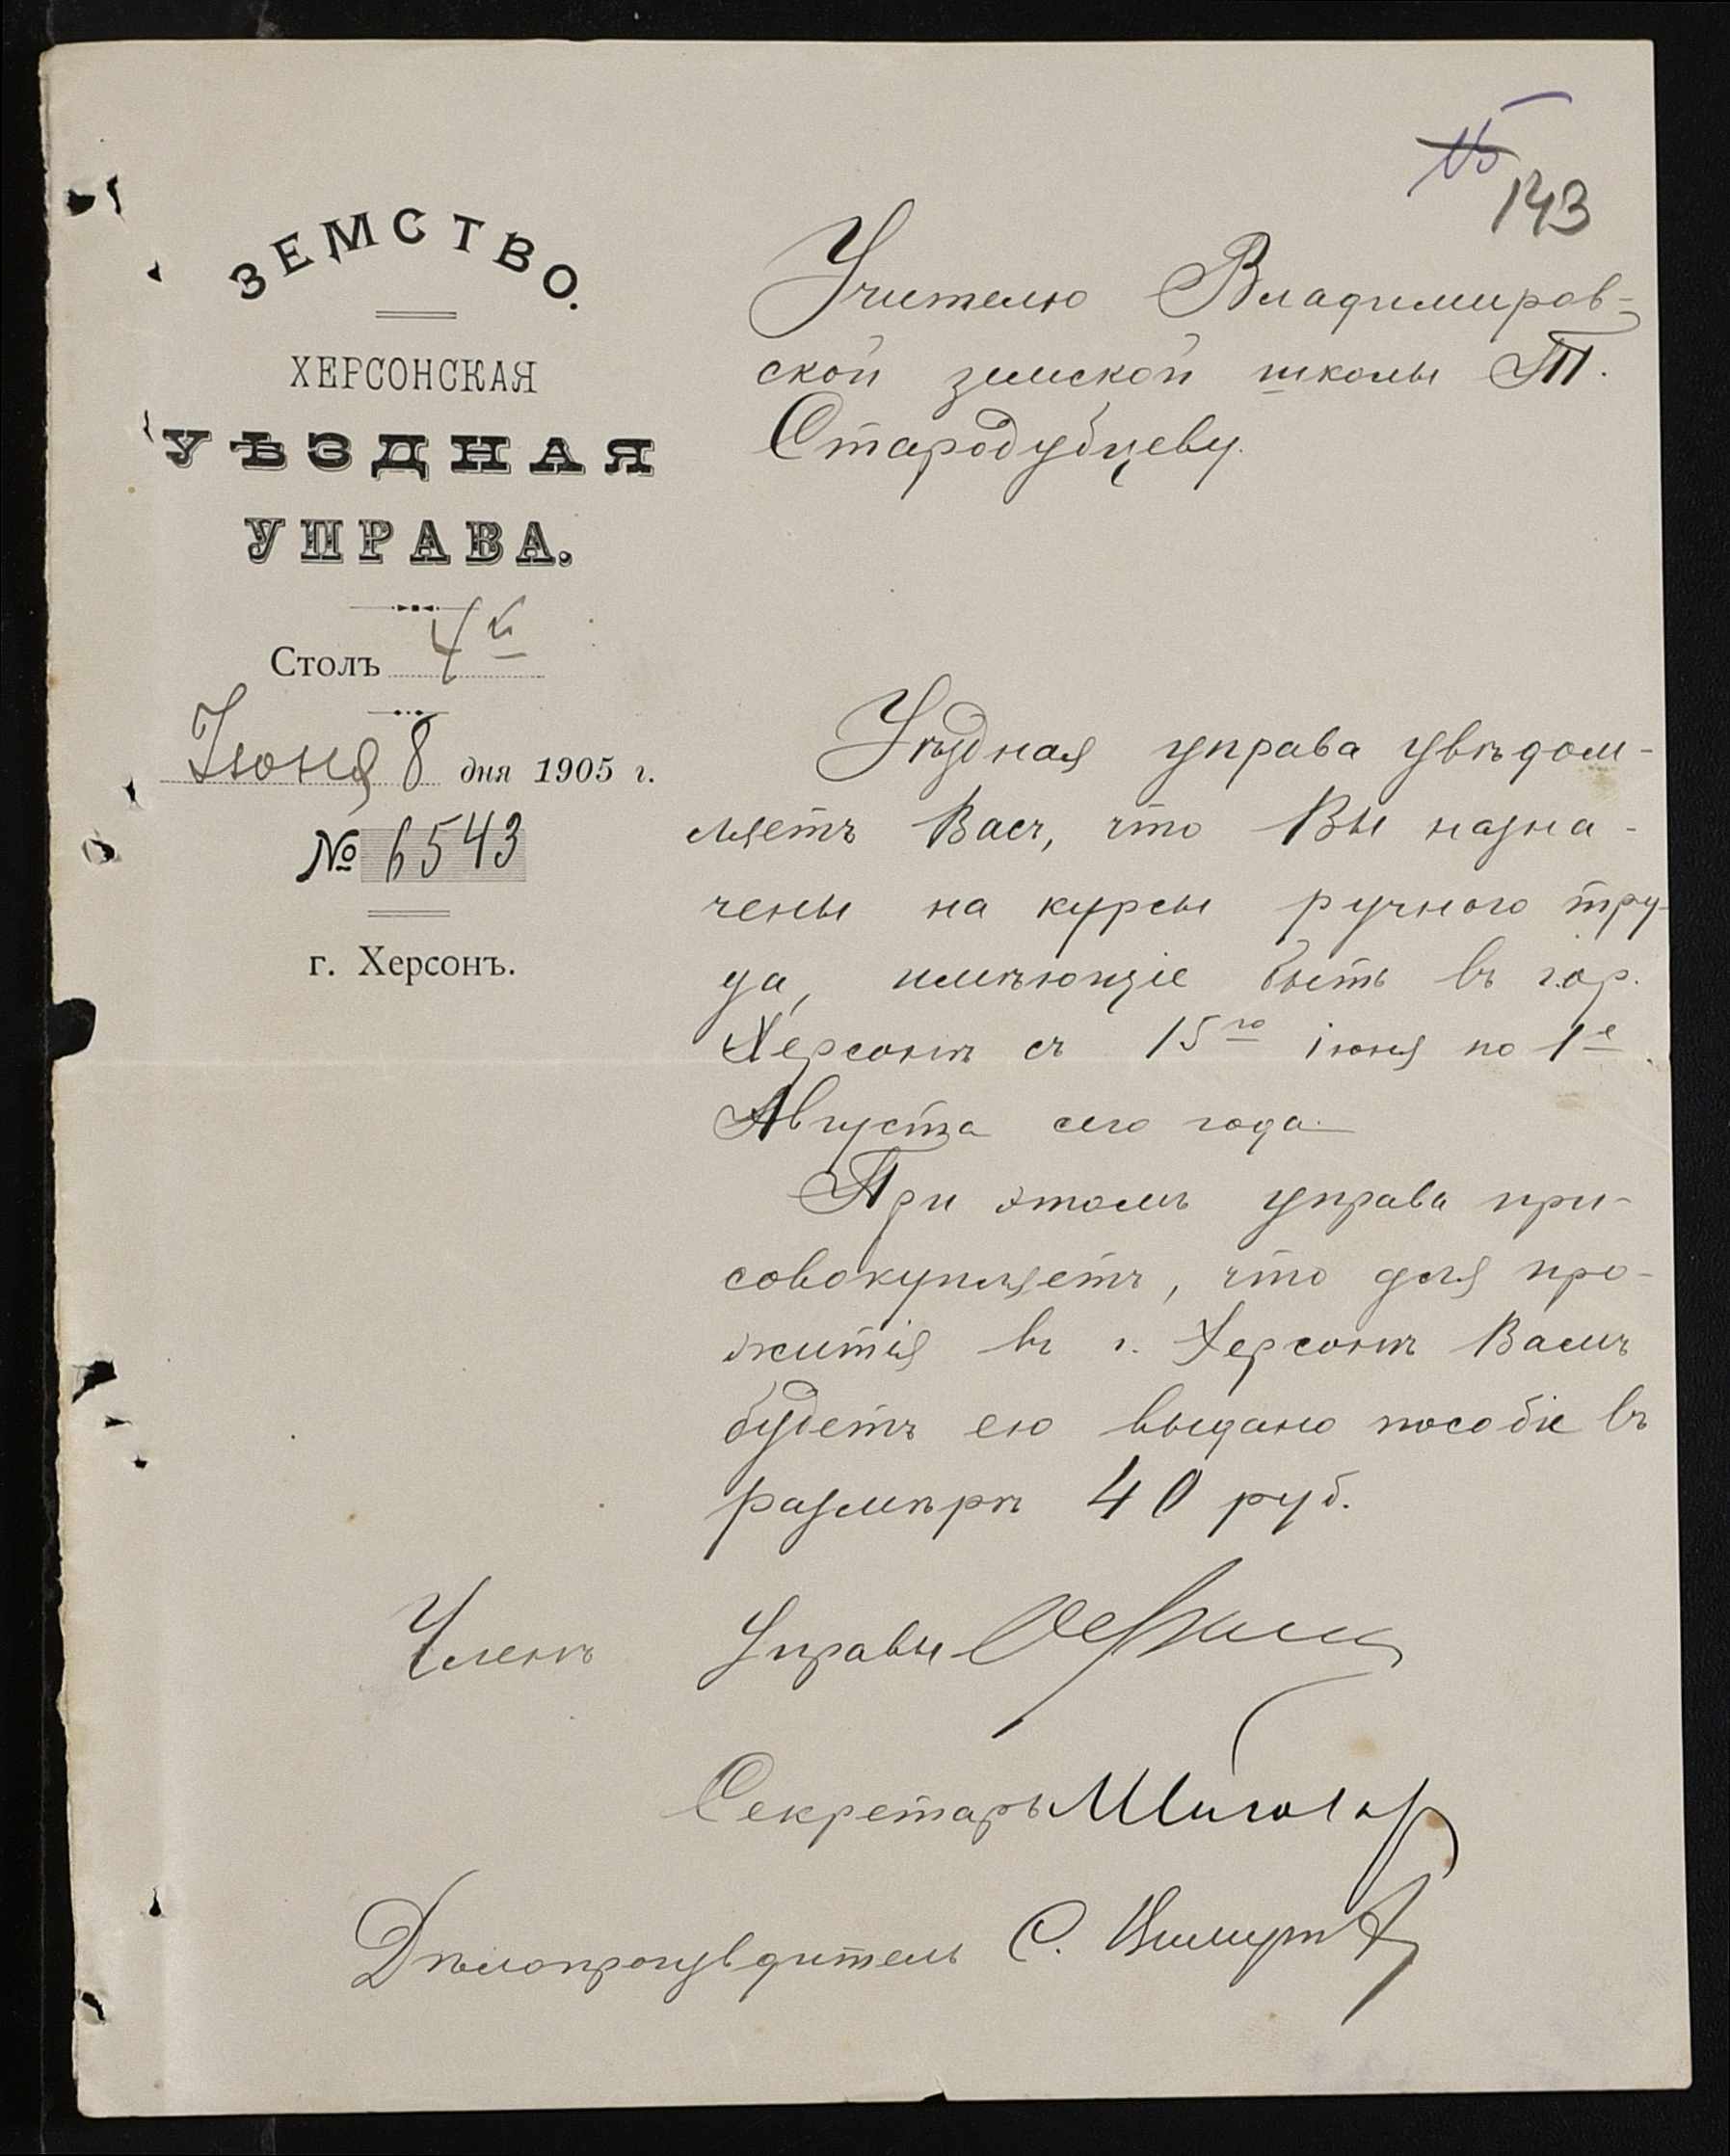 143
ЗЕМСТВО.
ХЕРСОНСКАЯ
УѢЗДНАЯ
УПРАВА.
Столъ 4й
Іюня 8 дня 1905 г.
№ 6543
г. Херсонъ.
Учителю Владимиров-
ской земской школы Т.
Стародубцеву.
Уѣздная управа увѣдом-
ляетъ Васъ, что Вы назна-
чены на курсы ручного тру-
да, имѣющіе быть въ гор.
Херсонѣ съ 15го іюня по 1е
Августа сего года.
При этомъ управа при-
совокупляетъ, что для про-
житія въ г. Херсонѣ Вамъ
будетъ ею выдано пособіе въ
размѣрѣ 40 руб.
Членъ Управы
Секретарь
Дѣлопроизводитель С.